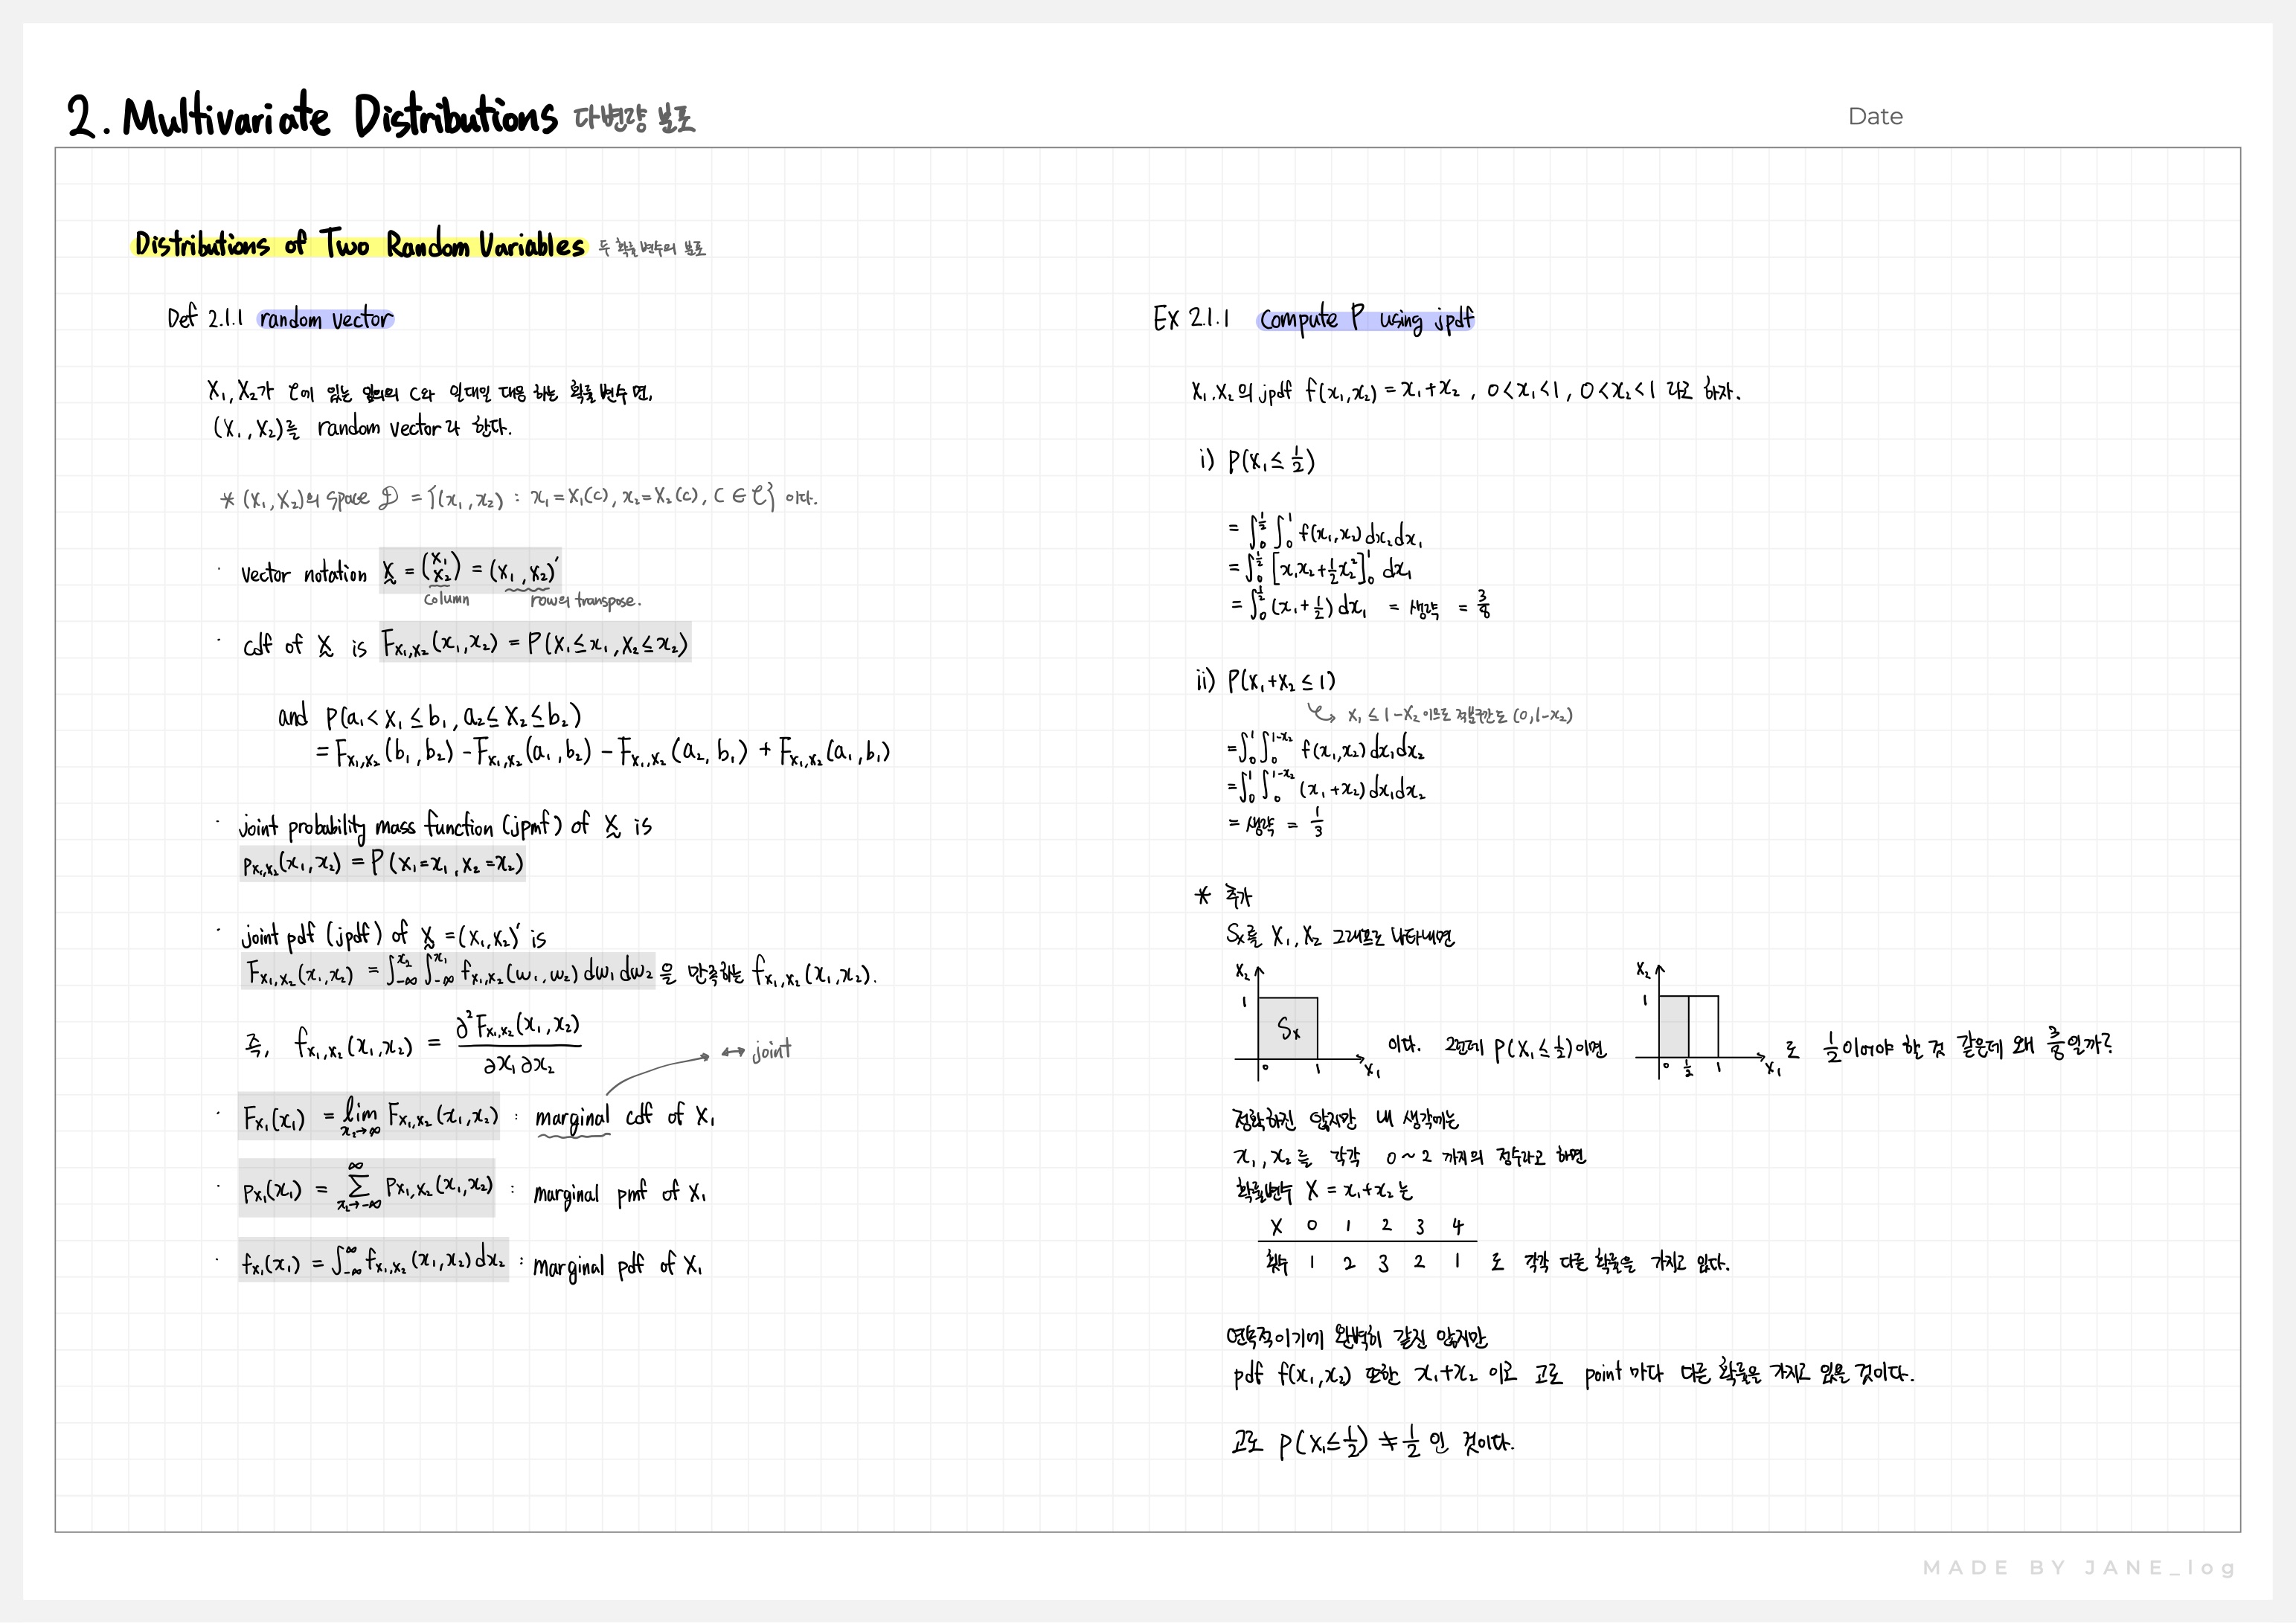 2. Multivariate Distributions 다변량 분포
Date
Distributions of Two Random Variables 두 확률변수의 분포
Def 2.1.1 random vector
X₁, X₂가 𝒞에 있는 임의의 c와 일대일 대응 하는 확률 변수 면,
(X₁, X₂)를 random vector라 한다.
* (X₁, X₂)의 space 𝒟 = {(x₁, x₂) : x₁ = X₁(c), x₂ = X₂(c), c ∈ 𝒞} 이다.
· vector notation X̰ = (X₁ X₂) = (X₁, X₂)′
column row의 transpose.
· cdf of X̰ is F_{X₁,X₂}(x₁, x₂) = P(X₁ ≤ x₁, X₂ ≤ x₂)
and P(a₁ < X₁ ≤ b₁, a₂ ≤ X₂ ≤ b₂)
= F_{X₁,X₂}(b₁, b₂) − F_{X₁,X₂}(a₁, b₂) − F_{X₁,X₂}(a₂, b₁) + F_{X₁,X₂}(a₁, b₁)
· joint probability mass function (jpmf) of X̰ is
p_{X₁,X₂}(x₁, x₂) = P(X₁ = x₁, X₂ = x₂)
· joint pdf (jpdf) of X̰ = (X₁, X₂)′ is
F_{X₁,X₂}(x₁, x₂) = ∫_{-∞}^{x₂} ∫_{-∞}^{x₁} f_{X₁,X₂}(w₁, w₂) dw₁ dw₂ 을 만족하는 f_{X₁,X₂}(x₁, x₂).
즉, f_{X₁,X₂}(x₁, x₂) = ∂²F_{X₁,X₂}(x₁, x₂) / ∂x₁ ∂x₂
↔ joint
· F_{X₁}(x₁) = lim_{x₂→∞} F_{X₁,X₂}(x₁, x₂) : marginal cdf of X₁
· p_{X₁}(x₁) = ∑_{x₂→-∞}^{∞} p_{X₁,X₂}(x₁, x₂) : marginal pmf of X₁
· f_{X₁}(x₁) = ∫_{-∞}^{∞} f_{X₁,X₂}(x₁, x₂) dx₂ : marginal pdf of X₁
Ex 2.1.1 compute P using jpdf
X₁, X₂의 jpdf f(x₁, x₂) = x₁ + x₂, 0 < x₁ < 1, 0 < x₂ < 1 라고 하자.
i) P(X₁ ≤ 1/2)
= ∫₀^{1/2} ∫₀¹ f(x₁, x₂) dx₂ dx₁
= ∫₀^{1/2} [x₁x₂ + ½x₂²]₀¹ dx₁
= ∫₀^{1/2} (x₁ + ½) dx₁ = 생략 = 3/8
ii) P(X₁ + X₂ ≤ 1)
X₁ ≤ 1 − X₂ 이므로 적분구간도 (0, 1−x₂)
= ∫₀¹ ∫₀^{1−x₂} f(x₁, x₂) dx₁ dx₂
= ∫₀¹ ∫₀^{1−x₂} (x₁ + x₂) dx₁ dx₂
= 생략 = 1/3
* 추가
Sx를 X₁, X₂ 그래프로 나타내면
X₂ 1 Sx 0 1 X₁ 이다. 그런데 P(X₁ ≤ ½)이면 X₂ 1 0 ½ 1 X₁ 로 ½이어야 할 것 같은데 왜 3/8일까?
정확하진 않지만 내 생각에는
x₁, x₂를 각각 0 ~ 2 까지의 정수라고 하면
확률변수 X = x₁ + x₂는
X 0 1 2 3 4
횟수 1 2 3 2 1 로 각각 다른 확률을 가지고 있다.
연속적이기에 완벽히 같진 않지만
pdf f(x₁, x₂) 또한 x₁ + x₂ 이고 고로 point 마다 다른 확률을 가지고 있을 것이다.
고로 P(X₁ ≤ ½) ≠ ½ 인 것이다.
MADE BY JANE_log